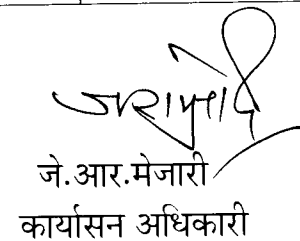 जे.आर.मेजारी
कार्यासन अधिकारी